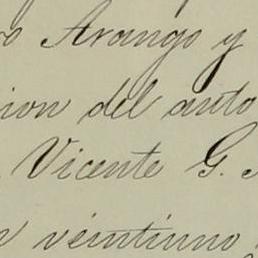 Arango y
ion del auto
Vicente G.
veintiuno